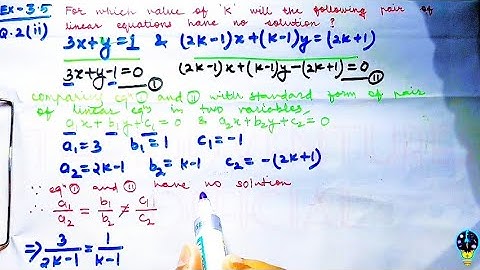 Ex-3.5 For which value of 'K' will the following pair of
Q.2(ii) linear equations have no solution?
3x+y=1 & (2K-1)x+(K-1)y=(2K+1)
3x+y-1=0 ① (2K-1)x+(K-1)y-(2K+1)=0 ②
comparing eqⁿ ① and ② with standard form of pair
of linear eqⁿs in two variables,
a₁x+b₁y+c₁=0 & a₂x+b₂y+c₂=0
a₁=3 b₁=1 c₁=-1
a₂=2K-1 b₂=K-1 c₂=-(2K+1)
∵ eqⁿ ① and ② have no solution
∴ a₁/a₂ = b₁/b₂ ≠ c₁/c₂
⇒ 3/2K-1 = 1/K-1